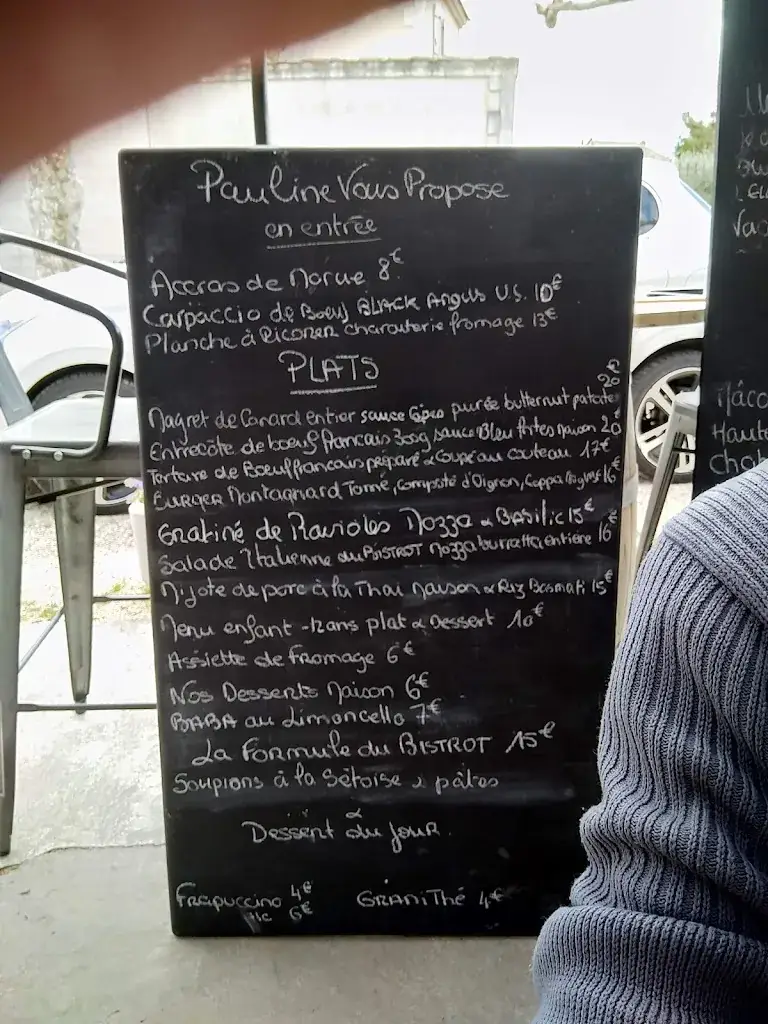 Pauline Vous Propose
en entrée
Accras de Morue 8€
Carpaccio de Boeuf BLACK Angus U.S. 10€
Planche à PICORER charcuterie fromage 13€
PLATS
Magret de Canard entier sauce purée butternut patate 20€
Entrecôte de boeuf francais 300g sauce Bleu frites maison 20
Tartare de Boeuf francais préparé & coupé au couteau 17€
BURGER Montagnard Tome, Compoté d'Oignon, Coppa 16€
Gratiné de Ravioles Mozza & BASILIC 15€
Salade Italienne du BISTROT mozza burratta entière 16€
Mijoté de porc à la Thai Maison & Riz Basmati 15€
Menu enfant -12ans plat & Dessert 10€
Assiette de Fromage 6€
Nos Desserts Maison 6€
BABA au Limoncello 7€
La Formule du BISTROT 15€
Soupions à la Sétoise & pâtes
&
Dessert du jour.
Frapuccino 4€
6€
GRANiThé 4€
Mâco
Haute